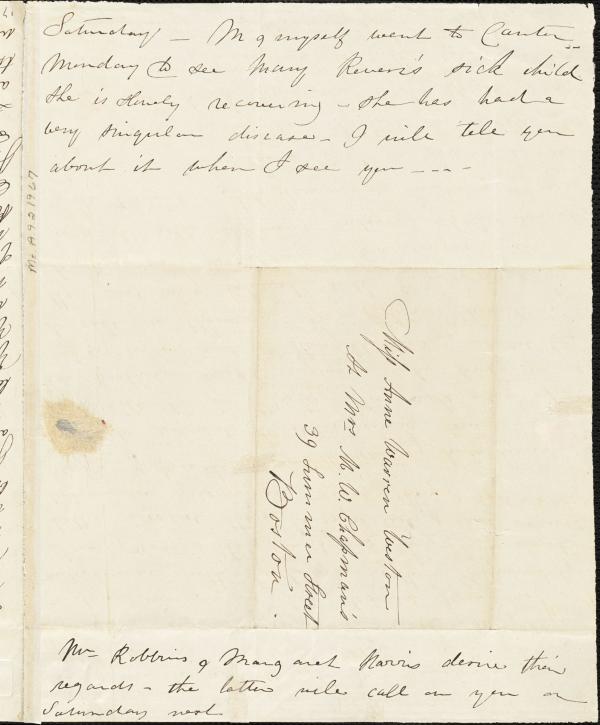 Saturday — M & myself went to Canton
Monday to see Mary Revere's sick child
She is slowly recovering — she has had a
very singular disease — I will tell you
about it when I see you - - - -
Ms. A.9.2.19.27
Miss Anne Warren Weston
At Mrs. M. W. Chapman's
39 Summer Street
Boston.
Mr Robbins & Margaret Harris desire their
regards — the latter will call on you on
Saturday next